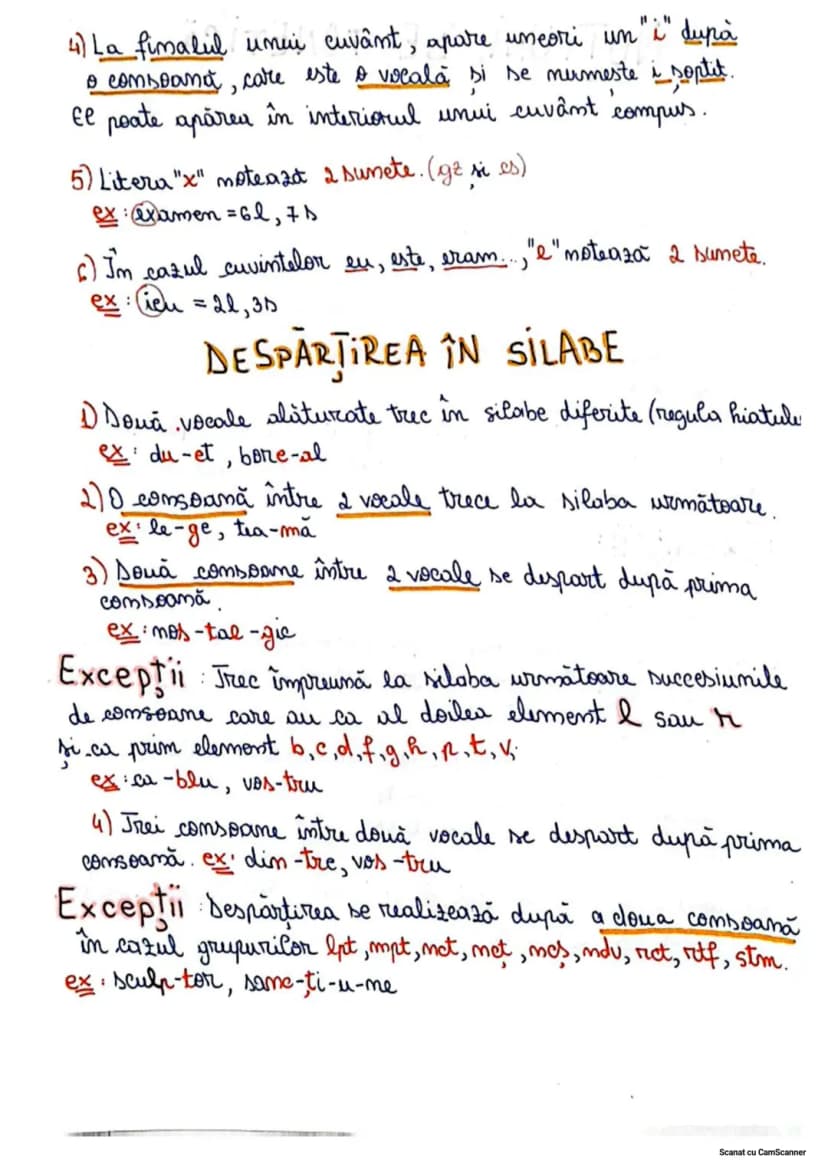 4) La finalul unui cuvânt, apare uneori un "i" după
o consoană, care este o vocală și se numește i șoptit.
El poate apărea în interiorul unui cuvânt compus.
5) Litera "x" notează 2 sunete. (gz și cs)
ex: examen = 6l, 7s
6) În cazul cuvintelor eu, este, eram..., "e" notează 2 sunete.
ex: ieu = 2l, 3s
DESPĂRȚIREA ÎN SILABE
1) Două vocale alăturate trec în silabe diferite (regula hiatului
ex: du-et, bore-al
2) O consoană între 2 vocale trece la silaba următoare.
ex: le-ge, tea-mă
3) Două consoane între 2 vocale se despart după prima
consoană.
ex: nos-tal-gic
Excepții: Trec împreună la silaba următoare succesiunile
de consoane care au ca al doilea element l sau r
și ca prim element b, c, d, f, g, h, p, t, v;
ex: ca-blu, vos-tru
4) Trei consoane între două vocale se despart după prima
consoană. ex: din-tre, vos-tru
Excepții Despărțirea se realizează după a doua consoană
în cazul grupurilor lpt, mpt, nct, ncț, ncș, ndv, rct, rtf, stm.
ex: sculp-tor, sanc-ți-u-ne
Scanat cu CamScanner